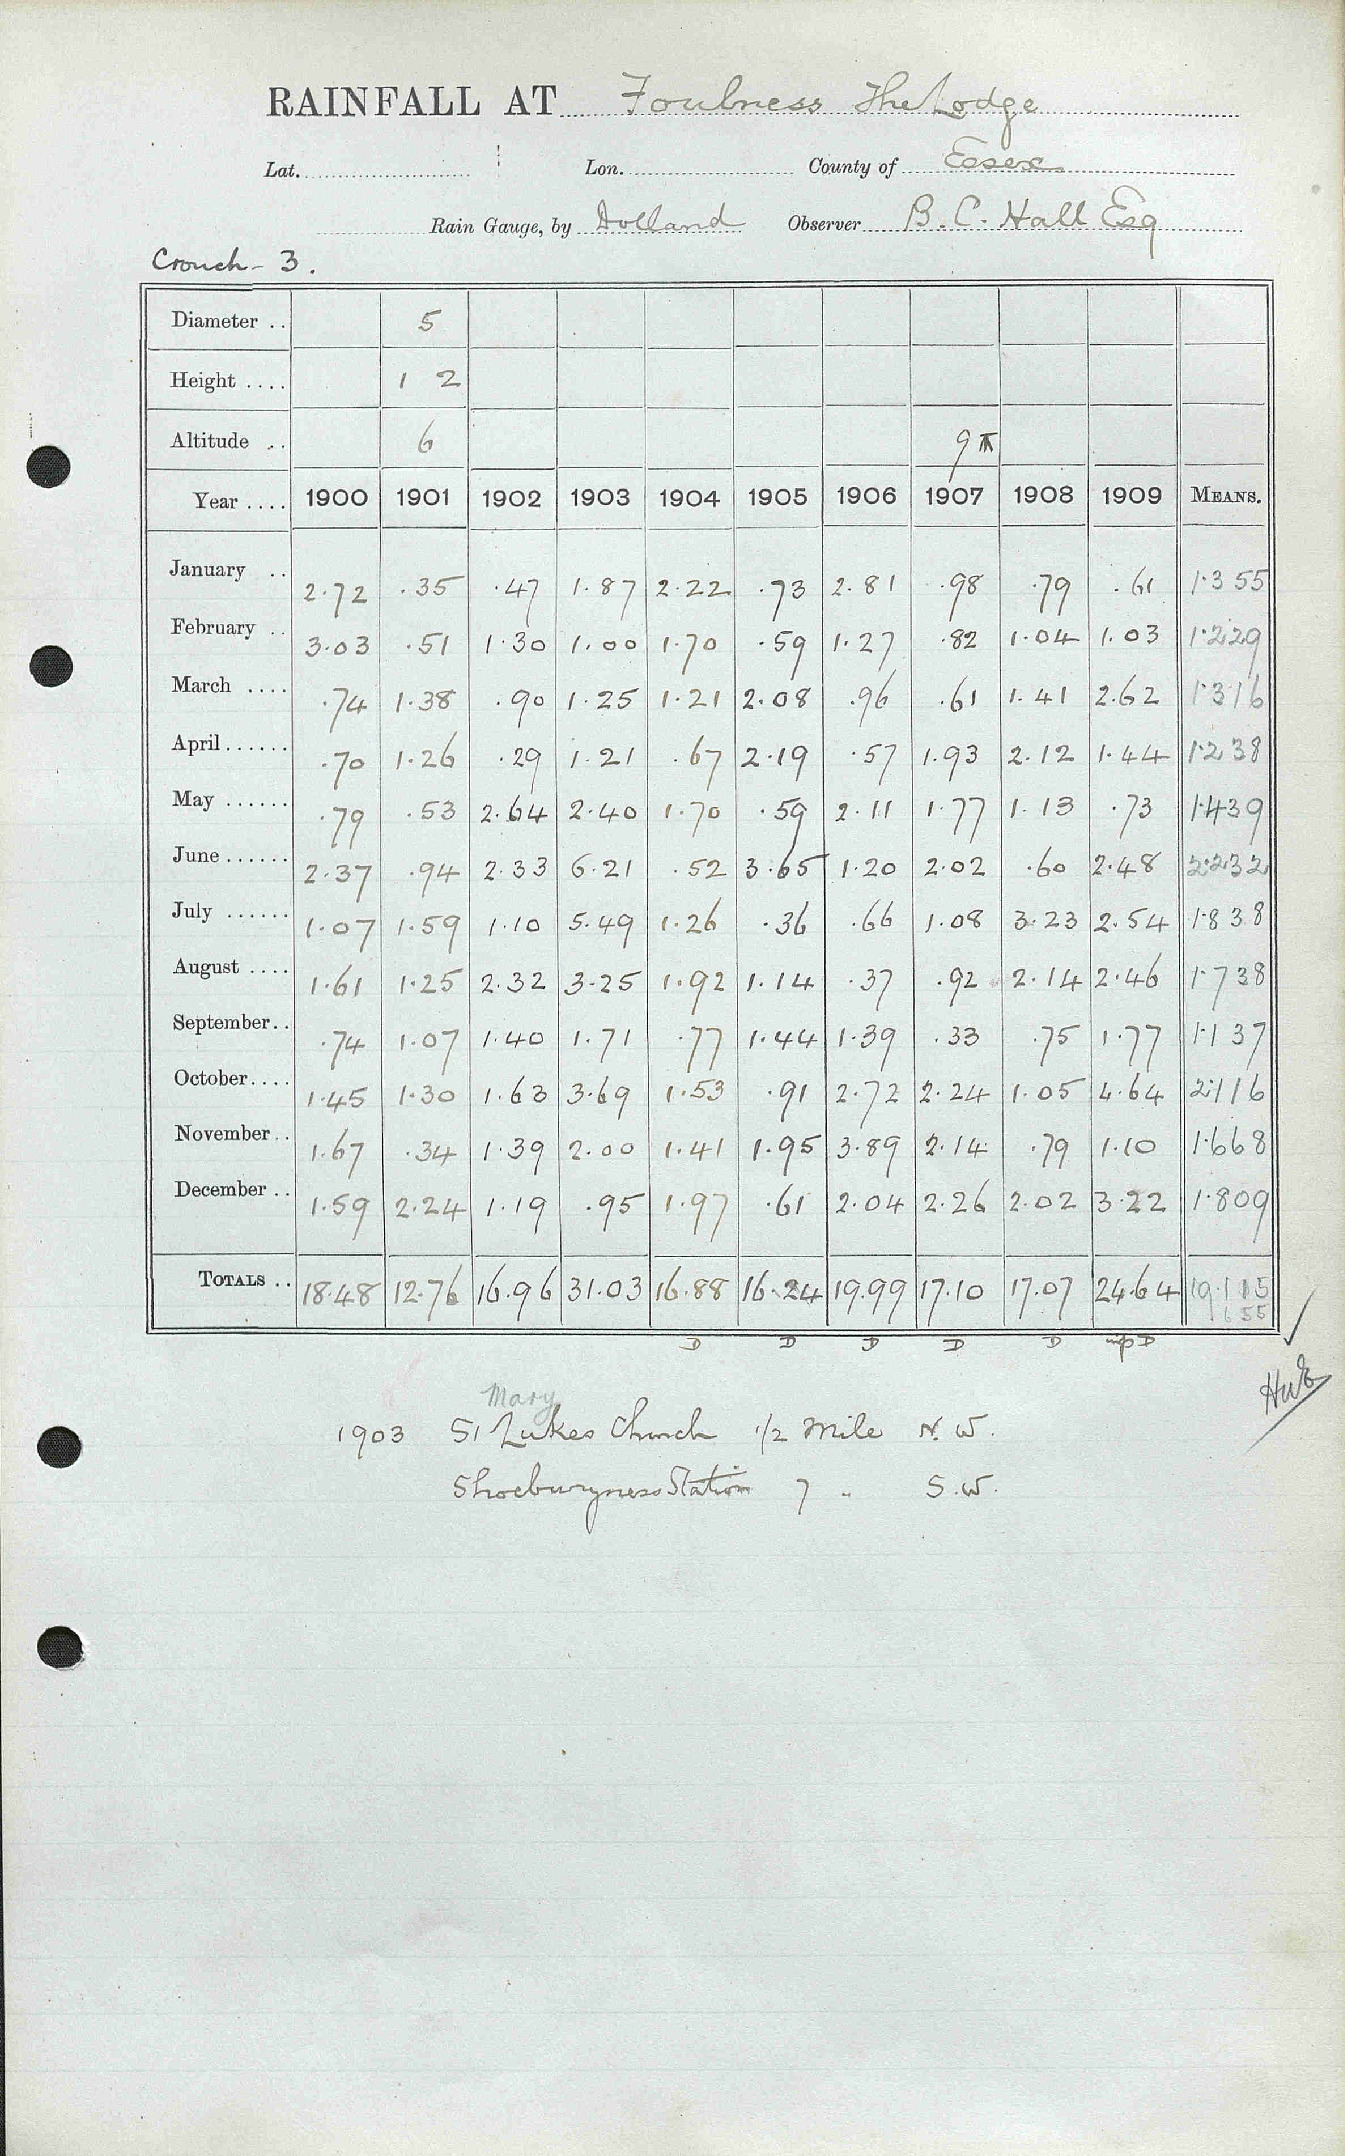 RAINFALL AT Foulness The Lodge
Lat. Lon. County of Essex
Rain Gauge, by Dolland Observer B. C. Hall Esq
Crouch - 3.
Diameter .. 5
Height .... 1 2
Altitude .. 6 9
Year .... 1900 1901 1902 1903 1904 1905 1906 1907 1908 1909 MEANS.
January .. 2.72 .35 .47 1.87 2.22 .73 2.81 .98 .79 .61 1.355
February .. 3.03 .51 1.30 1.00 1.70 .59 1.27 .82 1.04 1.03 1.229
March .... .74 1.38 .90 1.25 1.21 2.08 .96 .61 1.41 2.62 1.316
April ...... .70 1.26 .29 1.21 .67 2.19 .57 1.93 2.12 1.44 1.238
May ...... .79 .53 2.64 2.40 1.70 .59 2.11 1.77 1.13 .73 1.439
June ...... 2.37 .94 2.33 6.21 .52 3.65 1.20 2.02 .60 2.48 2.232
July ...... 1.07 1.59 1.10 5.49 1.26 .36 .66 1.08 3.23 2.54 1.838
August .... 1.61 1.25 2.32 3.25 1.92 1.14 .37 .92 2.14 2.46 1.738
September .. .74 1.07 1.40 1.71 .77 1.44 1.39 .33 .75 1.77 1.137
October .... 1.45 1.30 1.63 3.69 1.53 .91 2.72 2.24 1.05 4.64 2.116
November .. 1.67 .34 1.39 2.00 1.41 1.95 3.89 2.14 .79 1.10 1.668
December .. 1.59 2.24 1.19 .95 1.97 .61 2.04 2.26 2.02 3.22 1.809
TOTALS .. 18.48 12.76 16.96 31.03 16.88 16.24 19.99 17.10 17.07 24.64 19.115
D D D D D D
Mary
1903 St Lukes Church 1/2 Mile N. W.
Shoeburyness Station 7 " S.W.